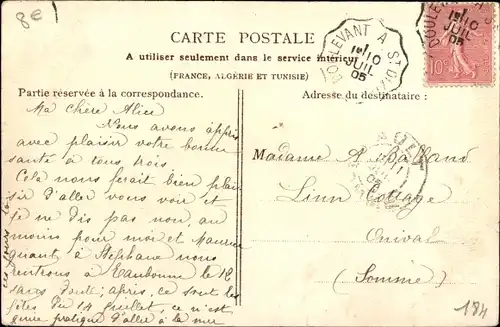 8e
CARTE POSTALE
A utiliser seulement dans le service intérieur
(FRANCE, ALGÉRIE ET TUNISIE)
Partie réservée à la correspondance.
Adresse du destinataire :
DOULEVANT A ST DIZIER
1E 10
JUIL
05
DOULEVANT A
1E 10
JUIL
05
10c
Ma chère Alice
Nous avons appris
avec plaisir votre bonne
santé à tous trois
Cela nous ferait bien plai
sir d'aller vous voir et
je ne dis pas non, au
moins pour moi et Maurice
quant à Stéphane nous
rentrons à Eaubonne le 12
sans faute ; après, ce sont les
fêtes du 14 Juillet, ce n'est
guère pratique d'aller à la mer
ces jours là
Madame A Balland
Linn Cottage
Onival
(Somme)
11
05
184